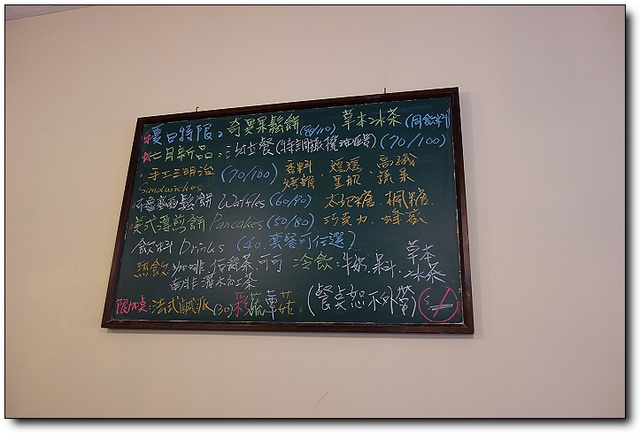 夏日特限: 奇異果鬆餅 (80/110) 草本冰茶 (同飲料)
七月新品: 法士餐 (70/100)
手工三明治 (70/100) 香料 燻雞 高纖 蔬果
Sandwiches
鬆餅 Waffles (60/90) 太妃糖.楓糖.
美式薄煎餅 Pancakes (50/80) 巧克力.蜂蜜
飲料 Drinks (40.套餐可任選)
熱飲: 咖啡.伯爵茶.可可 冷飲:牛奶.果汁.草本冰茶
南非灌木茶
限外桌: 法式鹹派 (30) 彩蔬蕈菇 (餐桌恕不外帶)